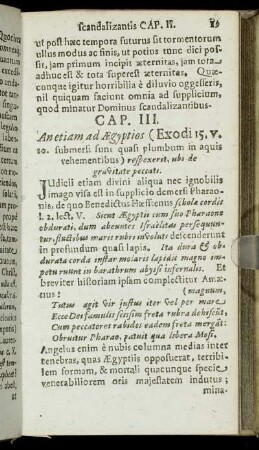 scandalizantis CAP. II. 89
ut post hæc tempora futurus sit tormentorum
ullus modus ac finis, ut potius tunc dici pos-
sit, jam primum incipit æternitas, jam tota
adhuc est & tota superest æternitas. Quæ-
cunque igitur horribilia è diluvio oggesseris,
nil quiquam faciunt omnia ad supplicium,
quod minatur Dominus scandalizantibus.
CAP. III.
An etiam ad Ægyptios (Exodi 15. v.
10. submersi sunt quasi plumbum in aquis
vehementibus) respexerit, ubi de
gravitate peccati.
JUdicii etiam divini aliqua nec ignobilis
imago visa est in supplicio demersi Pharao-
nis, de quo Benedictus Hæsſtenus schola cordis
l. 2. lect. V. Sicut Ægyptii cum suo Pharaone
obdurati, dum abeuntes Israëlitas persequun-
tur, fluctibus maris rubri involuti descenderunt
in profundum quasi lapis. Ita dura & ob-
durata corda instar molaris lapidis magno im-
petu ruunt in barathrum abyssi infernalis. Et
breviter historiam ipsam complectitur Amæ-
nus: (magnum,
Tutus agit Vir justus iter vel per mare
Ecce Dei famulis scissim freta rubra dehiscũt,
Cum peccatores rabidos eadem freta mergãt:
Obruitur Pharao, patuit qua libera Mosi.
Angelus enim è nubis columna medias inter
tenebras, quas Ægyptiis opposuerat, terribi-
lem formam, & mortali quacunque specie
venerabiliorem oris majestatem indutus;
mina-